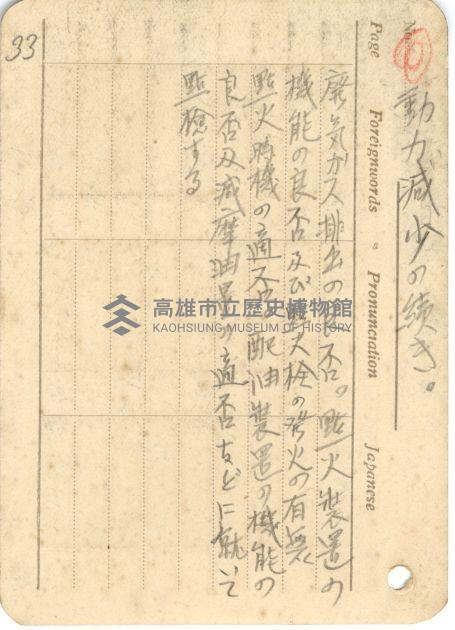 No.
Page Foreignwords 。 Pronunciation Japanese
動力減少の続き。
廃気ガス排出の良否。點火装置の
機能の良否及び點火栓の発火の有無
點火時機の適否、配油装置の機能の
良否及減摩油量の適否などに就いて
點検する
33
高雄市立歷史博物館
KAOHSIUNG MUSEUM OF HISTORY